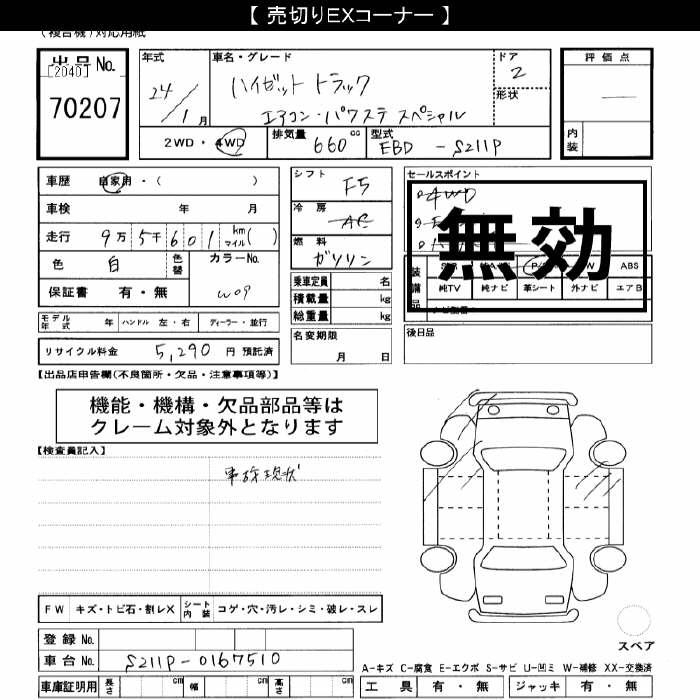 【 売切りEXコーナー 】
(複合機)対応用紙
出品No.
[2040]
70207
年式
24/1月
車名・グレード
ハイゼット トラック
エアコン・パワステ スペシャル
ドア
2
形状
評価点
—
内装
2WD・4WD
排気量 660cc
型式 EBD - S211P
車歴 自家用・( )
車検 年 月
走行 9万5千601km マイル( )
色 白 色替 カラーNo. W09
保証書 有・無
シフト F5
冷房 AC
燃料 ガソリン
乗車定員 名
積載量 kg
総重量 kg
名変期限
月 日
セールスポイント
4WD
無効
装備品
ABS
純TV 純ナビ 革シート 外ナビ エアB
後日品
モデル年式 年 ハンドル 左・右 ディーラー・並行
リサイクル料金 5,290 円 預託済
【出品店申告欄(不良箇所・欠品・注意事項等)】
機能・機構・欠品部品等は
クレーム対象外となります
【検査員記入】
事故現状
FW キズ・トビ石・割レX シート内装 コゲ・穴・汚レ・シミ・破レ・スレ
登録No.
車台No. S211P-0167510
車庫証明用 長さ cm 幅 cm 高さ cm
スペア
A-キズ C-腐食 E-エクボ S-サビ U-凹ミ W-補修 XX-交換済
工具 有・無 ジャッキ 有・無